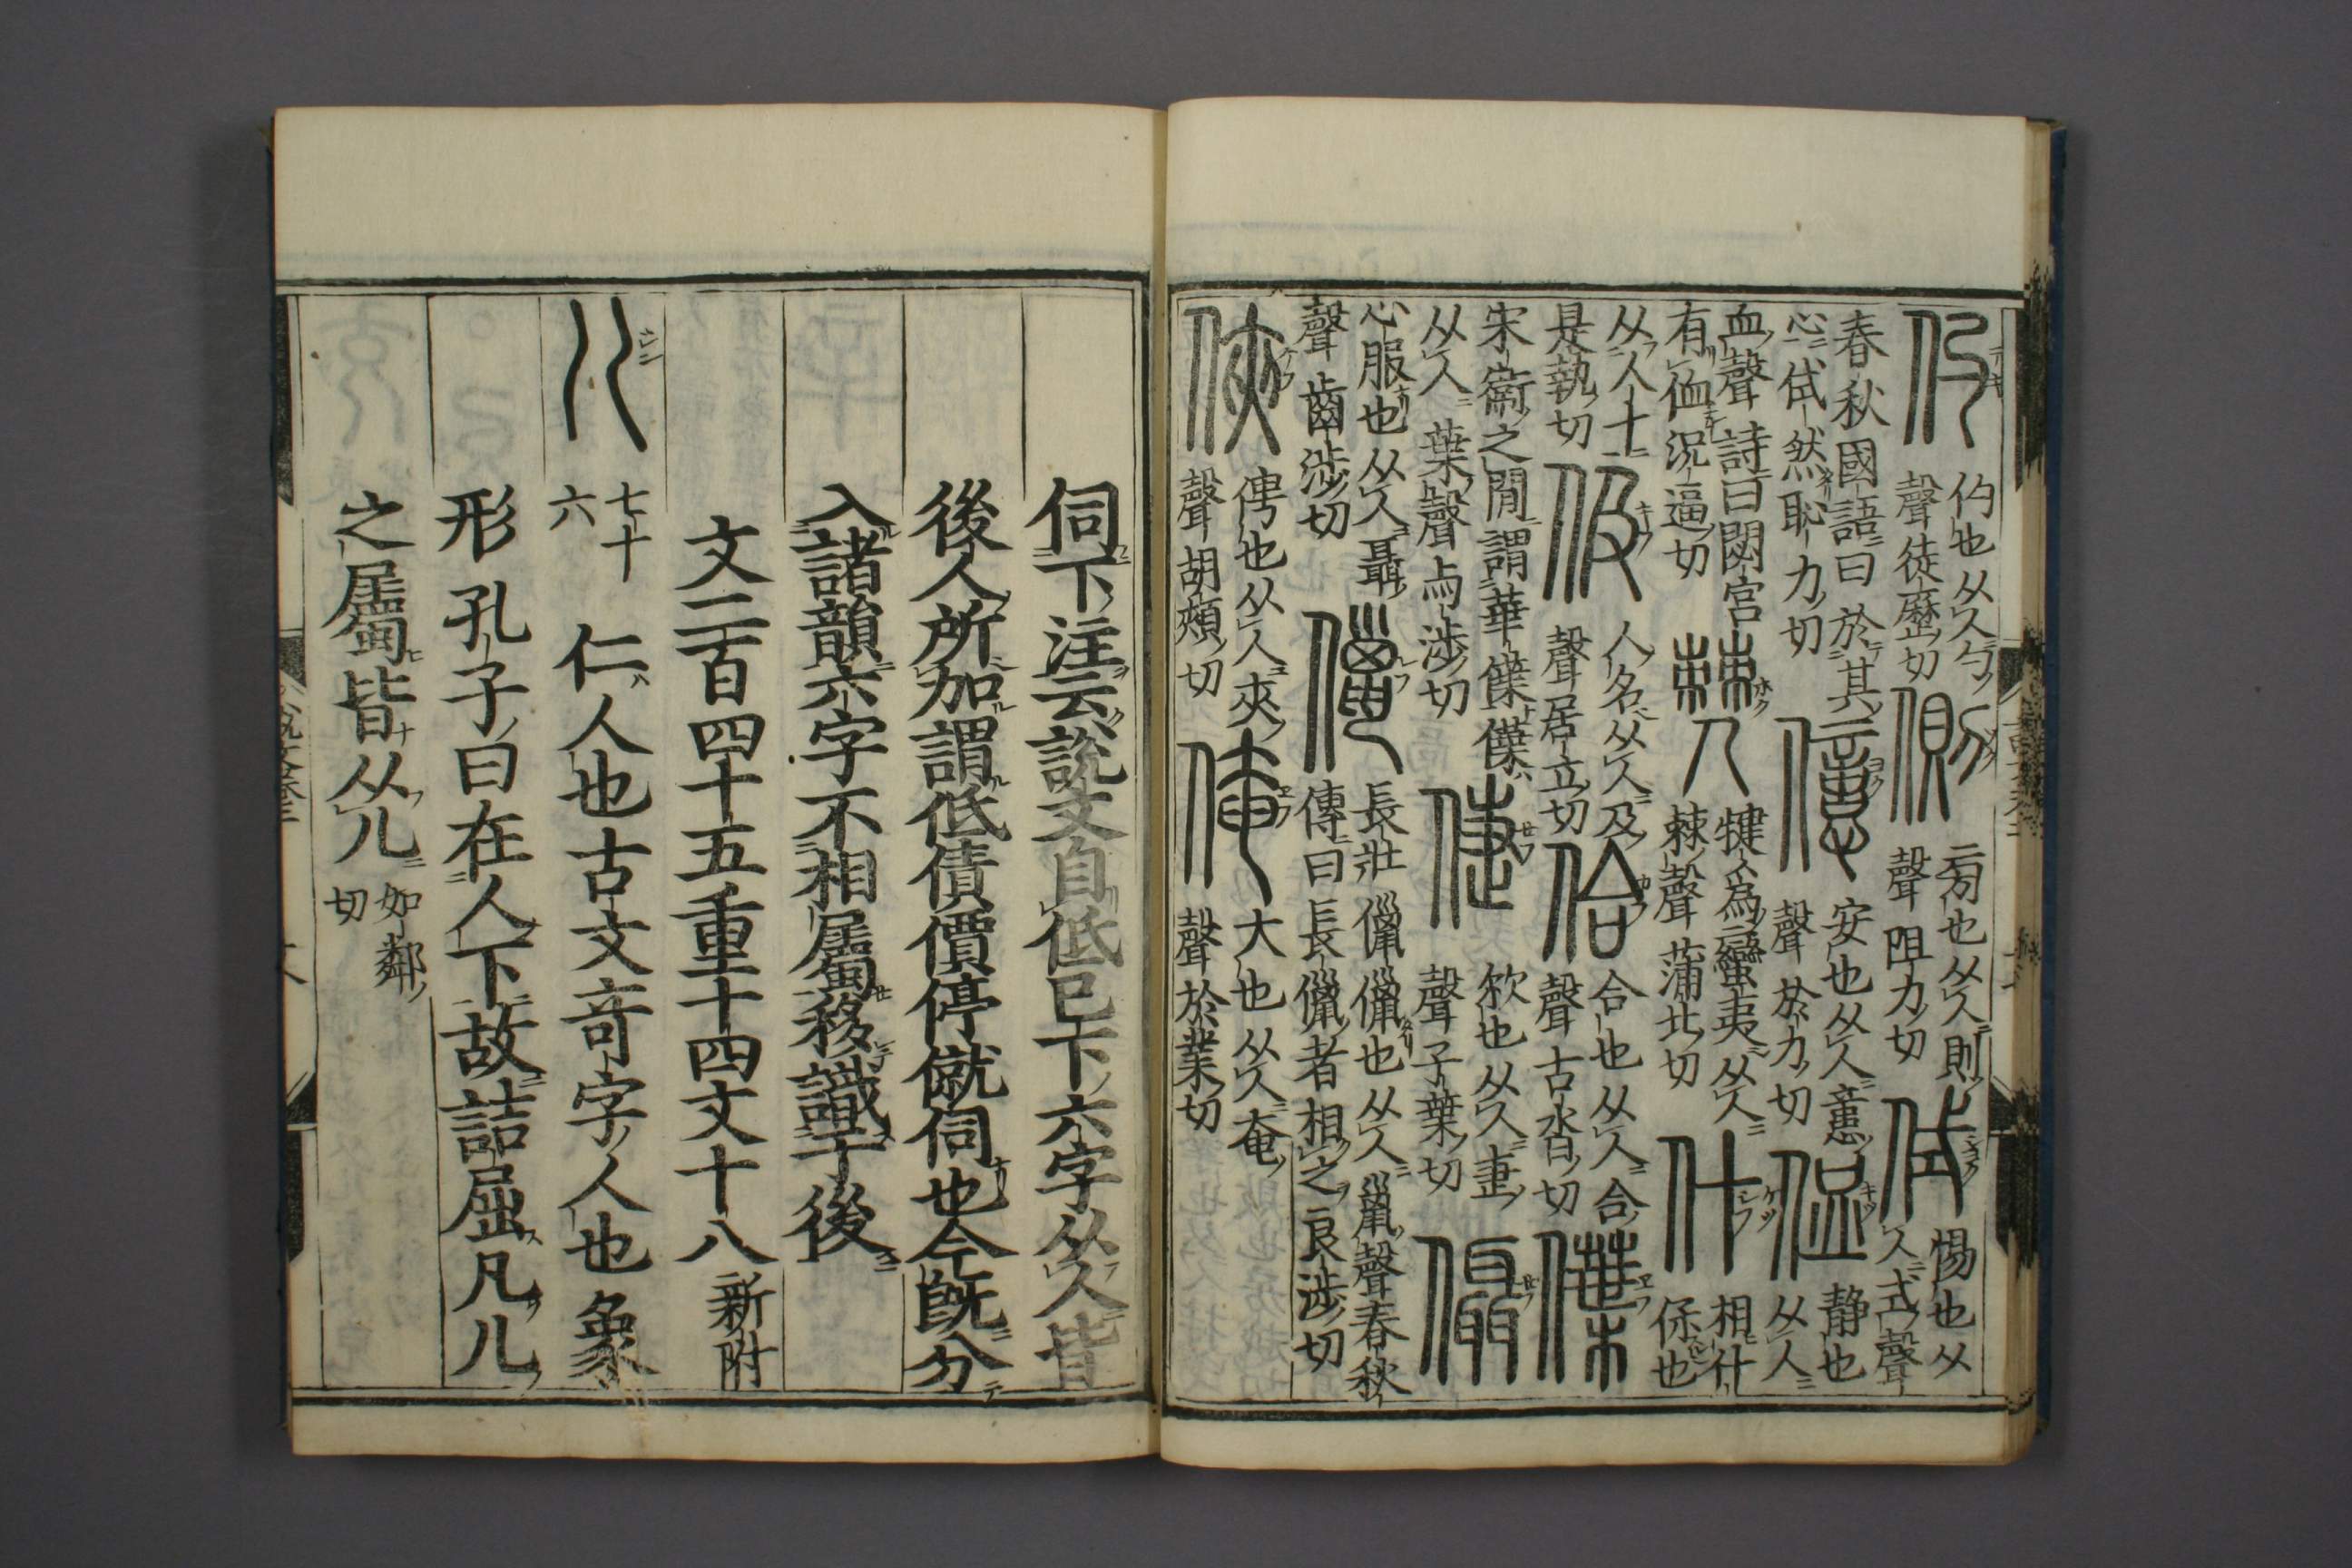 仢 仢也从人勺
聲徒歷切 側 㫄也从人則
聲阻力切 侙 惕也从
人式聲
春秋國語曰於其
心侙然恥力切 億 安也从人意
聲於力切 侐 静也
从人
血聲詩曰閟宮
有侐況逼切 僰 犍為蠻夷从人
棘聲蒲北切 什 相什
保也
从人十
是執切 伋 人名从人及
聲居立切 佮 合也从人合
聲古沓切 僷
宋衞之閒謂華僷僷
从人葉聲与涉切 倢 佽也从人疌
聲子葉切 儑
心服也从人聶
聲齒涉切 儠 長壯儠儠也从人巤聲春秋
傳曰長儠者相之良涉切
俠 俜也从人夾
聲胡頰切 俺 大也从人奄
聲於業切
伺下注云說文自低已下六字从人皆
後人所加謂低債價停僦伺也今既分
入諸韻六字不相屬移識于後
文二百四十五重十四文十八 新附
儿 七十
六 仁人也古文奇字人也象
形孔子曰在人下故詰屈凡儿
之屬皆从儿 如鄰
切